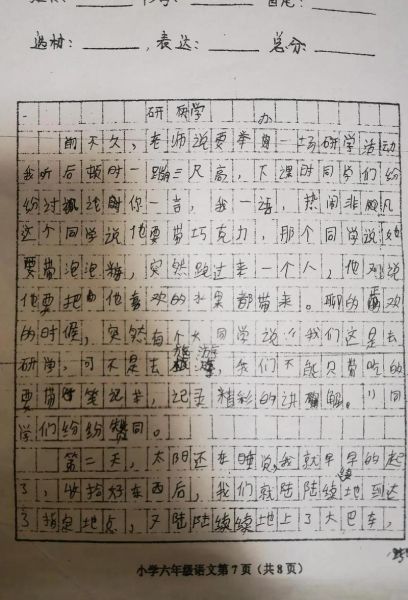 选材：____，表达：____ 总分：____
研 学
办
前不久，老师说要举一场研学活动
我听后顿时一蹦三尺高，下课时同学们纷
纷讨论 你一言，我一语，热闹非凡
这个同学说他要带巧克力，那个同学说她
要带泡泡糖，突然跳过来一个人，他 说
他要把他喜欢的水果都带来。聊的 欢
的时候，突然有个大同学说："我们这是去
研学，可不是去旅游，我们不能只带吃的
要带笔记本，记录精彩的讲解。"同
学们纷纷赞同。
第二天，太阳还在睡觉，我就早早的起
了，收拾好东西后，我们就陆陆续续地到达
了指定地点，又陆陆续续地上了大巴车，
小学六年级语文第7页（共8页）